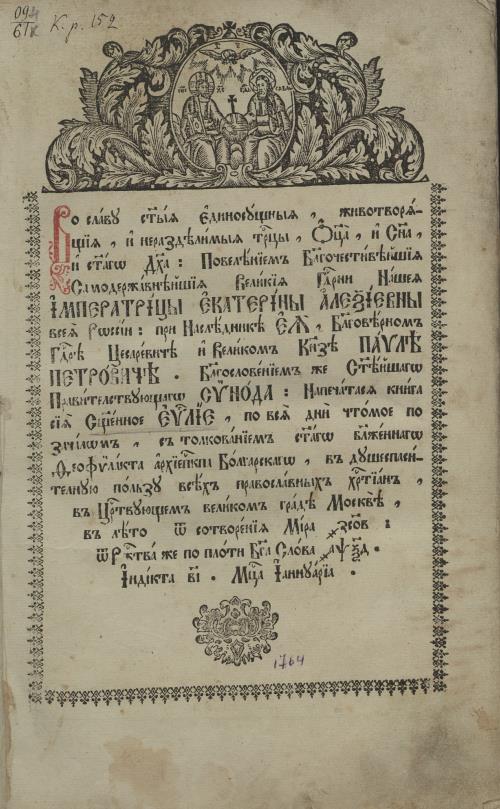 094
61к
К. р. 152
Во славу ст҃ыя единосущныя, животворя-
щія, и нераздѣлимыя трⷪ҇цы, Ѻц҃а, и Сн҃а,
и ст҃агѡ Дх҃а: Повелѣнїемъ Благочестивѣйшїѧ
Самодержавнѣйшїѧ Великїѧ Гдⷭ҇рни Нашеѧ
ІМПЕРАТРІЦЫ ЕКАТЕРІНЫ АЛЕѮІЕВНЫ
всеѧ Рѡссїи: при Наслѣдникѣ ЕѦ, Благовѣрномъ
Гдⷭ҇рѣ Цесаревичѣ и Великомъ Кнѧзѣ ПАѴЛѢ
ПЕТРОВИЧѢ. Благословенїемъ же Ст҃ѣйшагѡ
Правителствующагѡ СѴНОДА: Напечатасѧ книга
сїѧ Сщ҃енное ЕѴⷢ҇ЛІЕ, по всѧ дни чтомое по
зачаламъ, съ толкованїемъ ст҃агѡ бл҃женнагѡ
Ѳеофѷлакта архїепⷭ҇кпа Болгарскагѡ, въ душеспаси-
телную ползу всѣхъ православныхъ хрⷭ҇тїанъ,
въ Црⷭ҇твующемъ великомъ градѣ Москвѣ,
въ лѣто ѿ сотворенїѧ Міра ҂зсов:
ѿ Ржⷭ҇тва же по плоти Бг҃а Слова ҂аѱѯд.
Індікта ві. Мцⷭ҇а Іаннуарїа.
1764